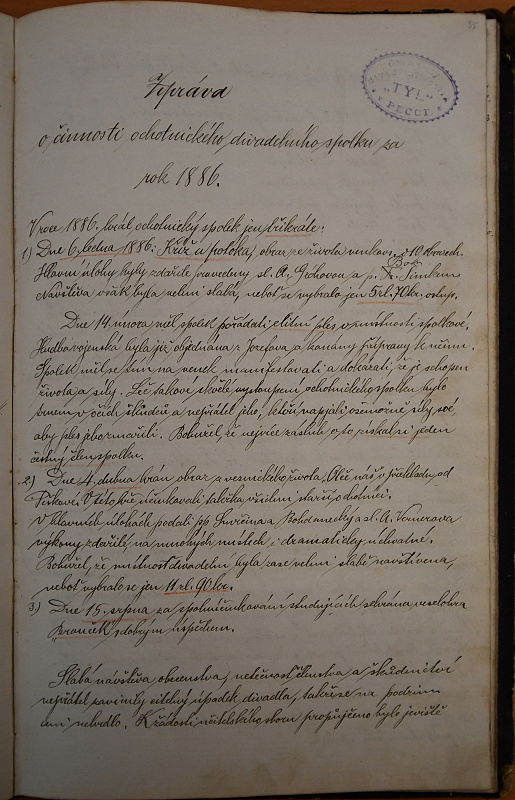 Zpráva
o činnosti ochotnického divadelního spolku za
rok 1886.
"TYL"
V roce 1886. hrál ochotnický spolek jen třikráte:
1) Dne 6. ledna 1886: Kříž u potoka, obraz ze života venkov. v 10 obrazech.
Hlavní úlohy byly zdařile provedeny sl. A. a p. Fr. Šimkem
Návštěva však byla velmi slabá, neboť se vybralo jen 5 zl. 70 kr. vstup.
Dne 14. února měl spolek pořádati elitní ples v místnosti spolkové.
Hudba vojenská byla již objednána z Josefova a konány přípravy k němu.
Spolek měl se tím na venek manifestovati a dokázati, že je schopen
života a síly. Leč takové skvělé vystoupení ochotnického spolku bylo
trnem v očích škůdců a nepřátel jeho, kteří napjali všemožně síly své,
aby ples jeho zmařili. Bohužel, že nejvíce zásluh o to získal si jeden
čestný člen spolku.
2) Dne 4. dubna hrán obraz z vesnického života, Otče náš v překladu od
Peškové. V této hře účinkovali takřka všichni starší ochotníci.
V hlavních úlohách podali pp. a Bohdanecký a sl. A. Vernerova
výkony zdařilé, na mnohých místech i dramaticky úchvatné.
Bohužel, že místnost divadelní byla zase velmi slabě navštívena,
neboť vybralo se jen 11 zl. 90 kr.
3) Dne 15. srpna za spoluúčinkování studujících sehrána veselohra
Brouček s dobrým úspěchem.
Slabá návštěva obecenstva, netečnost členstva a škůdnictví
nepřátel zavinily citelný úpadek divadla, takže se na podzim
ani nehrálo. K žádosti učitelského sboru propůjčeno bylo jeviště